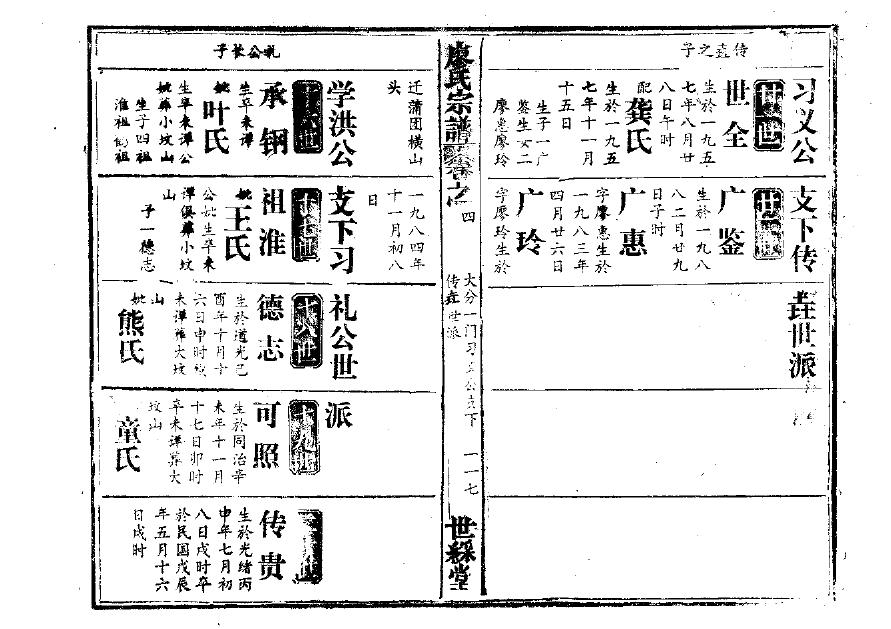 传垚之子
习义公
支下传
垚世派
世全
生於一九五
七年八月廿
八日午时
配
龚氏
生於一九五
七年十一月
十五日
生子一广
鉴生女二
廖惠廖玲
广鉴
生於一九八
八二月廿九
日子时
广惠
字廖惠生於
一九八三年
四月廿六日
广玲
字廖玲生於
廖氏宗谱
卷之四
大分一门习义公支下
传垚世派
一一七
世綵堂
礼公长子
迁蒲团横山
头
一九八四年
十一月初八
日
学洪公
支下习
礼公世
派
十六世
承钢
生卒未谭
妣
叶氏
生卒未谭公
妣葬小坟山
生子四祖
十七世
祖淮
妣
王氏
公妣生卒未
谭俱葬小坟
山
子一德志
十八世
德志
生於道光己
酉年十月十
六日申时
未谭葬大坟
山
妣
熊氏
十九世
可照
生於同治辛
未年十一月
十七日卯时
卒未谭葬大
坟山
童氏
传贵
生於光绪丙
申年七月初
八日戌时卒
於民国戊辰
年五月十六
日戌时